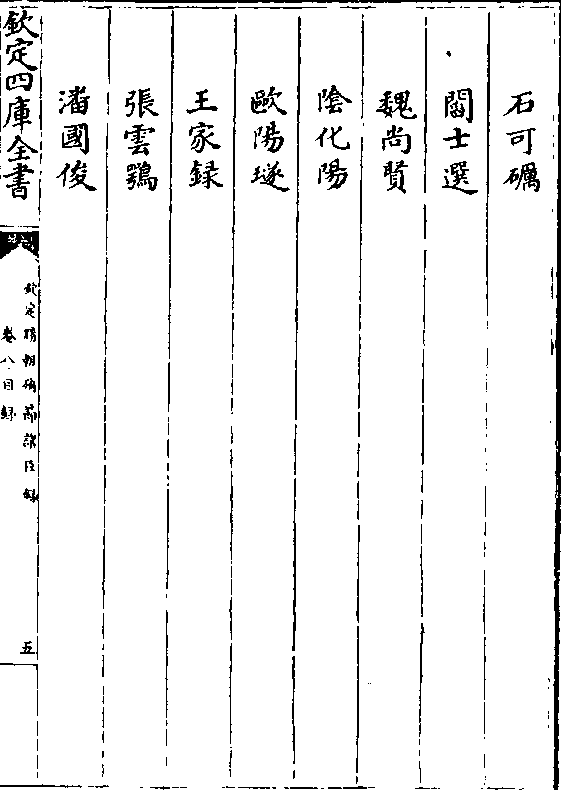 石可礪
閻士選
魏尚賢
陰化陽
歐陽璲
王家録
張雲鶚
潘國俊
欽定四庫全書
欽定勝朝殉節諸臣録
卷八目録
五